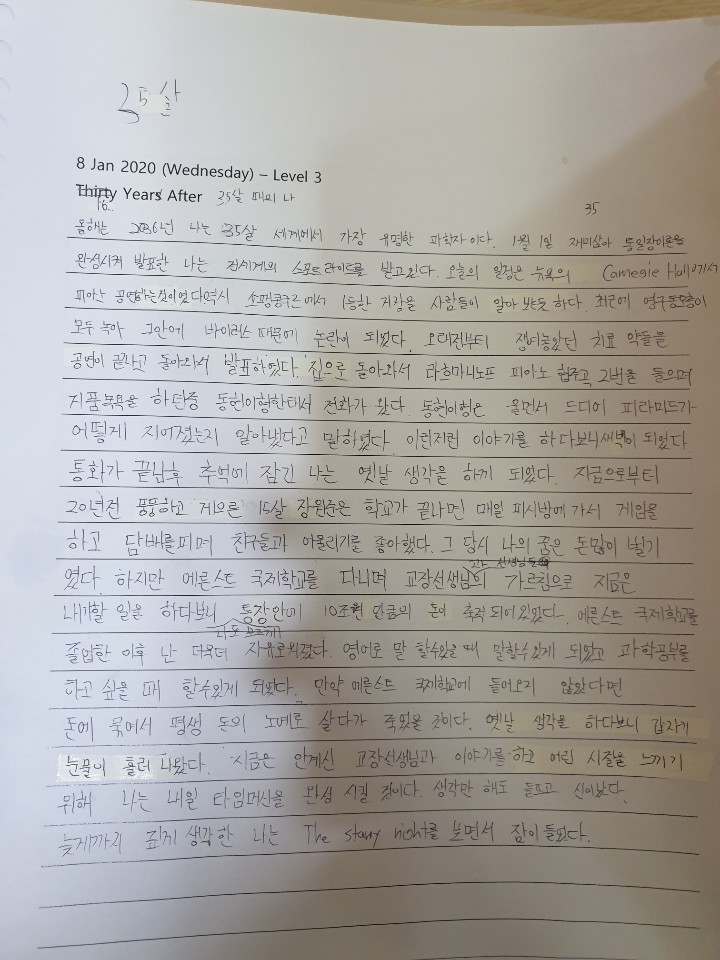 35살
8 Jan 2020 (Wednesday) – Level 3
Thirty Years After 35살 때의 나
16..
35
올해는 2036년 나는 35살 세계에서 가장 유명한 과학자이다. 1월 1일 재미삼아 통일장이론을
완성시켜 발표한 나는 전세계의 스포트라이트를 받고있다. 오늘의 일정은 뉴욕의 Carnegie Hall에서
피아노 공연하는것이였다 역시 쇼팽콩쿠르에서 1등한 지장을 사람들이 알아 봣듯 하다. 최근에 영구동토층이
모두 녹아 그안에 바이러스 때문에 논란이 되었다. 오래전부터 쟁여놓았던 치료 약들을
공연이 끝나고 돌아와서 발표하였다. 집으로 돌아와서 라흐마니노프 피아노 협주곡 2번을 들으며
거품목욕을 하던중 동현이형한테서 전화가 왔다. 동현이형은 울면서 드디어 피라미드가
어떻게 지어졌는지 알아냈다고 말하였다. 이런저런 이야기를 하다보니 새벽이 되었다.
통화가 끝난후 추억에 잠긴 나는 옛날 생각을 하게 되었다. 지금으로부터
20년전 뚱뚱하고 게으른 15살 장원준은 학교가 끝나면 매일 피시방에 가서 게임을
하고 담배를피며 친구들과 어울리기를 좋아했다. 그 당시 나의 꿈은 돈많이 벌기
였다. 하지만 에른스트 국제학교를 다니며 교장선생님의 가르침으로 지금은
내가할 일을 하다보니 통장안에 10조원 만큼의 돈이 축적 되어있었다. 에른스트 국제학교를
나도 모르게
졸업한 이후 난 더욱더 자유로워졌다. 영어로 말 할수있을 때 말할수있게 되었고 과학공부를
하고 싶을 때 할수있게 되었다. 만약 에른스트 국제학교에 들어오지 않았다면
돈에 묶여서 평생 돈의 노예로 살다가 죽었을 것이다. 옛날 생각을 하다보니 갑자기
눈물이 흘러 나왔다. 지금은 안계신 교장선생님과 이야기를 하고 어린 시절을 느끼기
위해 나는 내일 타임머신을 완성 시킬 것이다. 생각만 해도 들뜨고 신이났다.
늦게까지 깊게 생각한 나는 The starry night를 보면서 잠이 들었다.